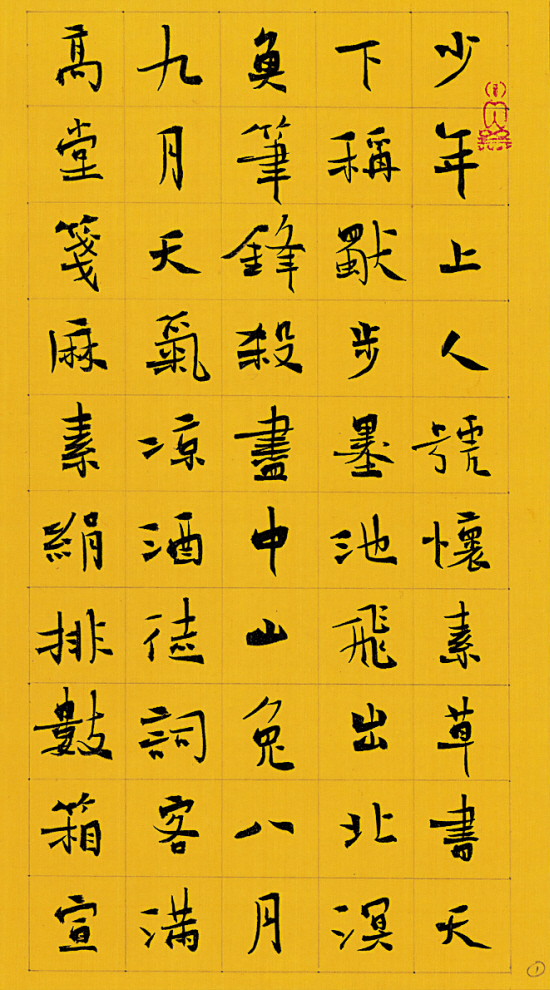 少年上人號懷素草書天
下稱獨步墨池飛出北溟
魚筆鋒殺盡中山兔八月
九月天氣凉酒徒詞客滿
高堂箋麻素絹排數箱宣
①